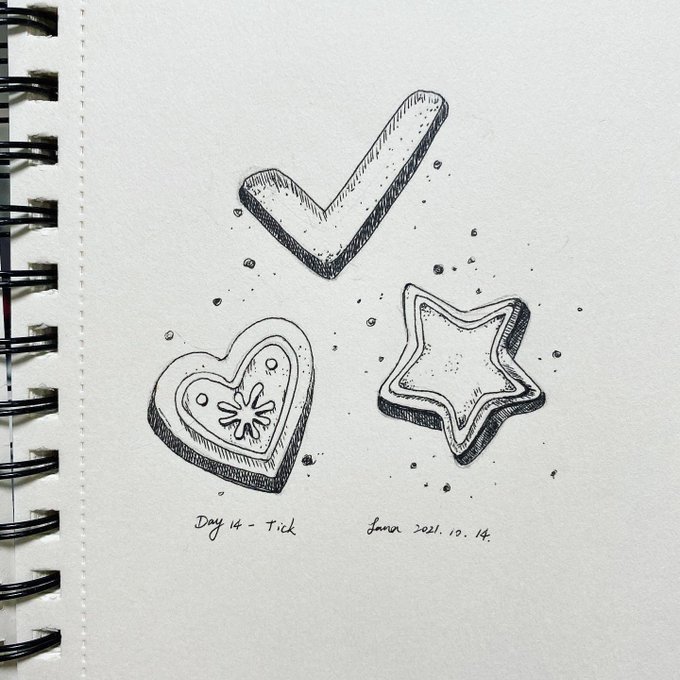 Day 14 - Tick
Lana 2021. 10. 14.